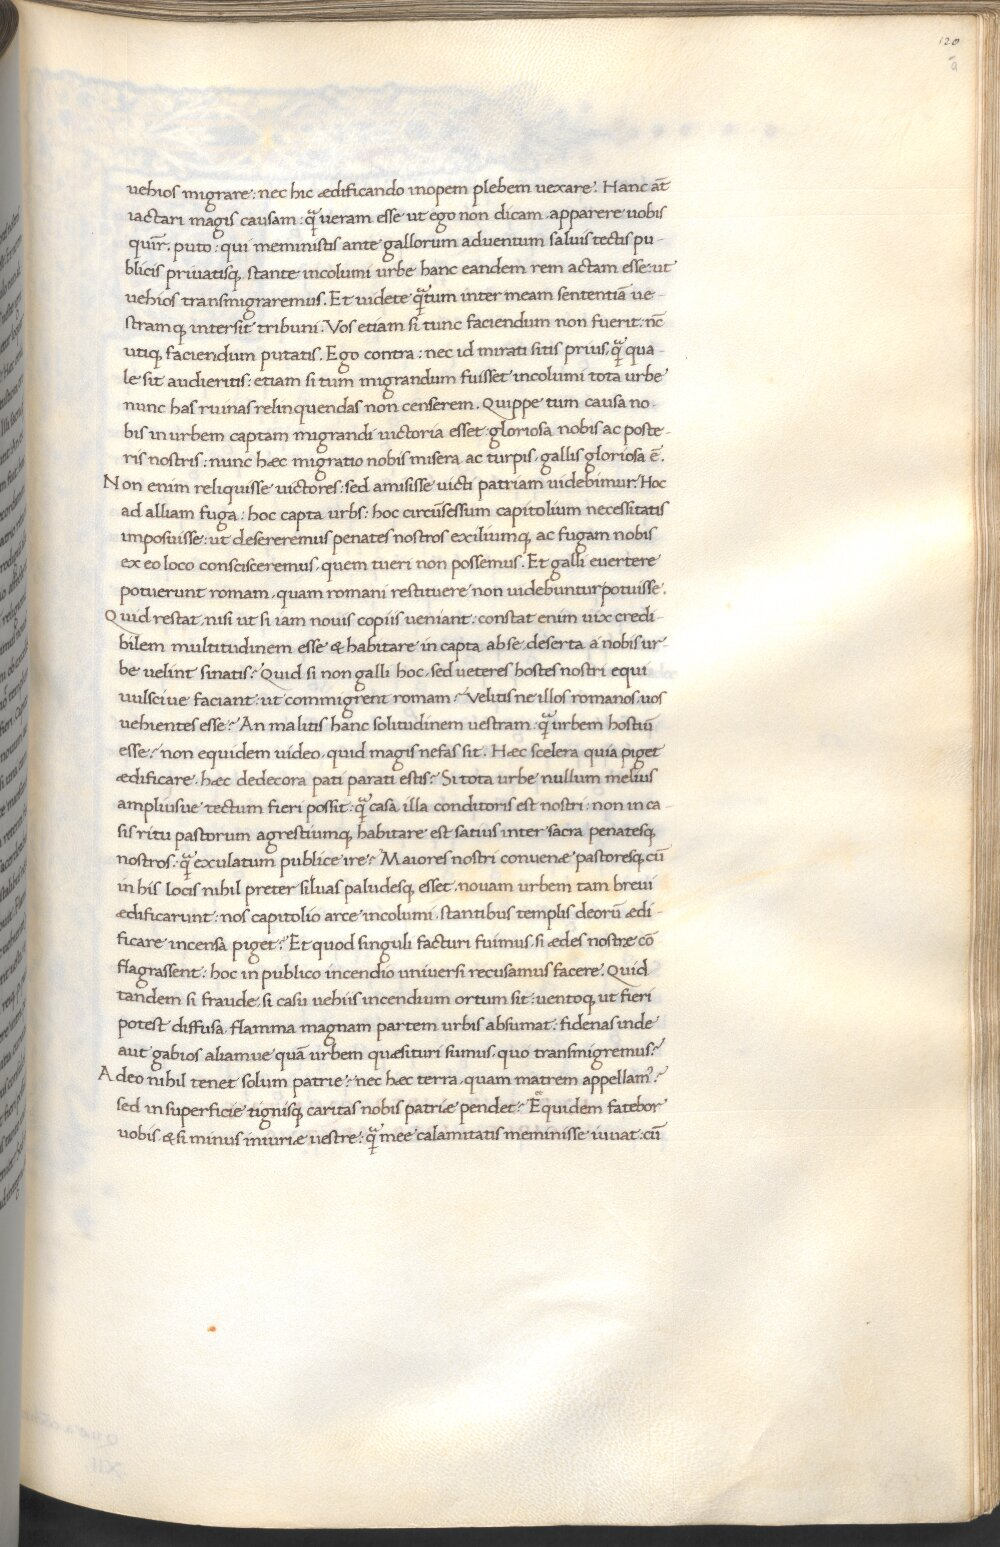 120
a
uehios migrare: nec hic ædificando inopem plebem uexare. Hanc at̄
iactari magis causam: qᷓ ueram esse ut ego non dicam. apparere uobis
quir̄. puto: qui meministis ante gallorum aduentum saluis tectis pu-
blicis priuatisq. stante incolumi urbe hanc eandem rem actam esse: ut
uehios transmigraremus. Et uidete qᷓtum inter meam sententiā ue-
stramq. intersit tribuni. Vos etiam si tunc faciendum non fuerit: nc̄
utiq. faciendum putatis. Ego contra: nec id mirati sitis prius. qᷓ qua-
le sit audieritis: etiam si tum migrandum fuisset incolumi tota urbe
nunc has ruinas relinquendas non censerem. Quippe tum causa no-
bis in urbem captam migrandi uictoria esset gloriosa nobis ac poste-
ris nostris: nunc hæc migratio nobis misera ac turpis. gallis gloriosa ē.
Non enim reliquisse uictores: sed amisisse uicti patriam uidebimur. Hoc
ad alliam fuga: hoc capta urbs: hoc circūsessum capitolium necessitatis
imposuisse: ut desereremus penates nostros exiliumq. ac fugam nobis
ex eo loco conscisceremus. quem tueri non possemus. Et galli euertere
potuerunt romam. quam romani restituere non uidebuntur potuisse.
Quid restat. nisi ut si iam nouis copiis ueniant: constat enim uix credi-
bilem multitudinem esse & habitare in capta ab se. deserta a nobis ur-
be uelint sinatis? Quid si non galli hoc. sed ueteres hostes nostri equi
uulsciue faciant: ut commigrent romam? Velitis ne illos romanos. uos
uehientes esse? An malitis hanc solitudinem uestram. qᷓ urbem hostiū
esse? non equidem uideo. quid magis nefas sit. Hæc scelera quia piget
ædificare. hæc dedecora pati parati estis? Si tota urbe nullum melius
ampliusue tectum fieri possit: qᷓ casa illa conditoris est nostri: non in ca-
sis ritu pastorum agrestiumq. habitare est satius inter sacra penatesq.
nostros. qᷓ exculatum publice ire? Maiores nostri conuenæ pastoresq. cū
in his locis nihil preter siluas paludesq. esset. nouam urbem tam breui
ædificarunt: nos capitolio arce incolumi. stantibus templis deorū ædi-
ficare incensa piget? Et quod singuli facturi fuimus. si ædes nostræ cō
flagrassent: hoc in publico incendio uniuersi recusamus facere. Quid
tandem si fraude. si casu uehiis incendium ortum sit: uentoq. ut fieri
potest diffusa. flamma magnam partem urbis absumat: fidenas inde
aut gabios aliamue quā urbem quæsituri sumus. quo transmigremus?
Adeo nihil tenet solum patrie? nec hæc terra. quam matrem appellam᷒?
sed in superficie tignisq. caritas nobis patriæ pendet? Equidem fatebor
uobis & si minus iniuriæ uestre: qᷓ mee calamitatis meminisse iuuat: cū